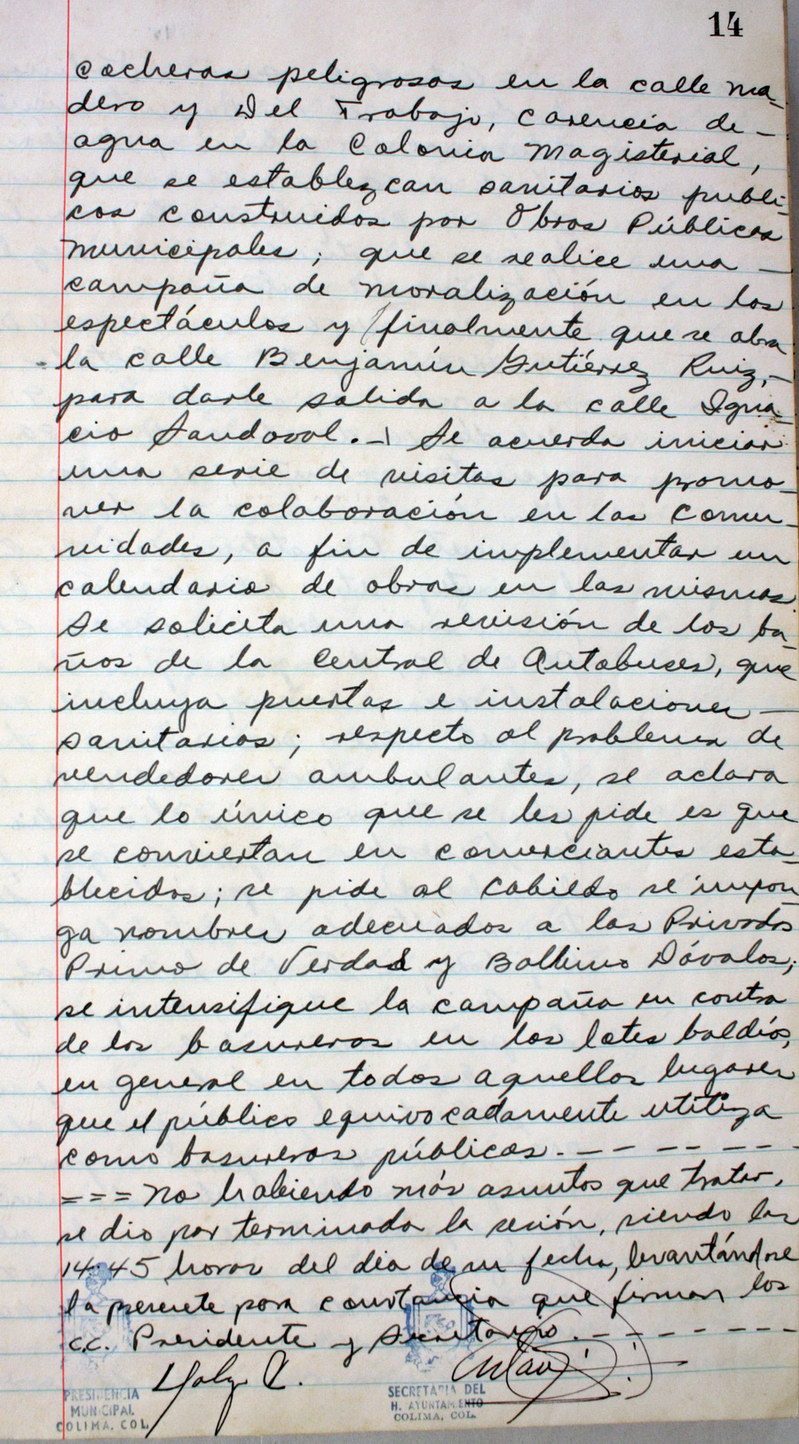 14
cocheras peligrosas en la calle Ma-
dero y Del Trabajo, carencia de -
agua en la Colonia Magisterial,
que se establezcan sanitarios públi-
cos construidos por Obras Públicas
Municipales; que se realice una -
campaña de moralización en los
espectáculos y finalmente que se abra
la calle Benjamín Gutiérrez Ruiz, -
para darle salida a la calle Igna-
cio Sandoval.- Se acuerda iniciar
una serie de visitas para promo-
ver la colaboración en las Comu-
nidades, a fin de implementar un
calendario de obras en las mismas.
Se solicita una revisión de los ba-
ños de la Central de Autobuses, que
incluya puertas e instalaciones -
sanitarias; respecto al problema de
vendedores ambulantes, se aclara
que lo único que se les pide es que
se conviertan en comerciantes esta-
blecidos; se pide al Cabildo se impon-
ga nombres adecuados a las Privadas
Primo de Verdad y Balbino Dávalos;
se intensifique la campaña en contra
de los basureros en los lotes baldíos,
en general en todos aquellos lugares
que el público equivocadamente utiliza
como basureros públicos. - - - - - -
=== No habiendo más asuntos que tratar,
se dio por terminada la sesión, siendo las
14:45 horas del día de su fecha, levantándose
la presente para constancia que firman los
C.C. Presidente y Secretario. - - - - - -
PRESIDENCIA
MUNICIPAL
COLIMA, COL.
SECRETARIA DEL
H. AYUNTAMIENTO
COLIMA, COL.